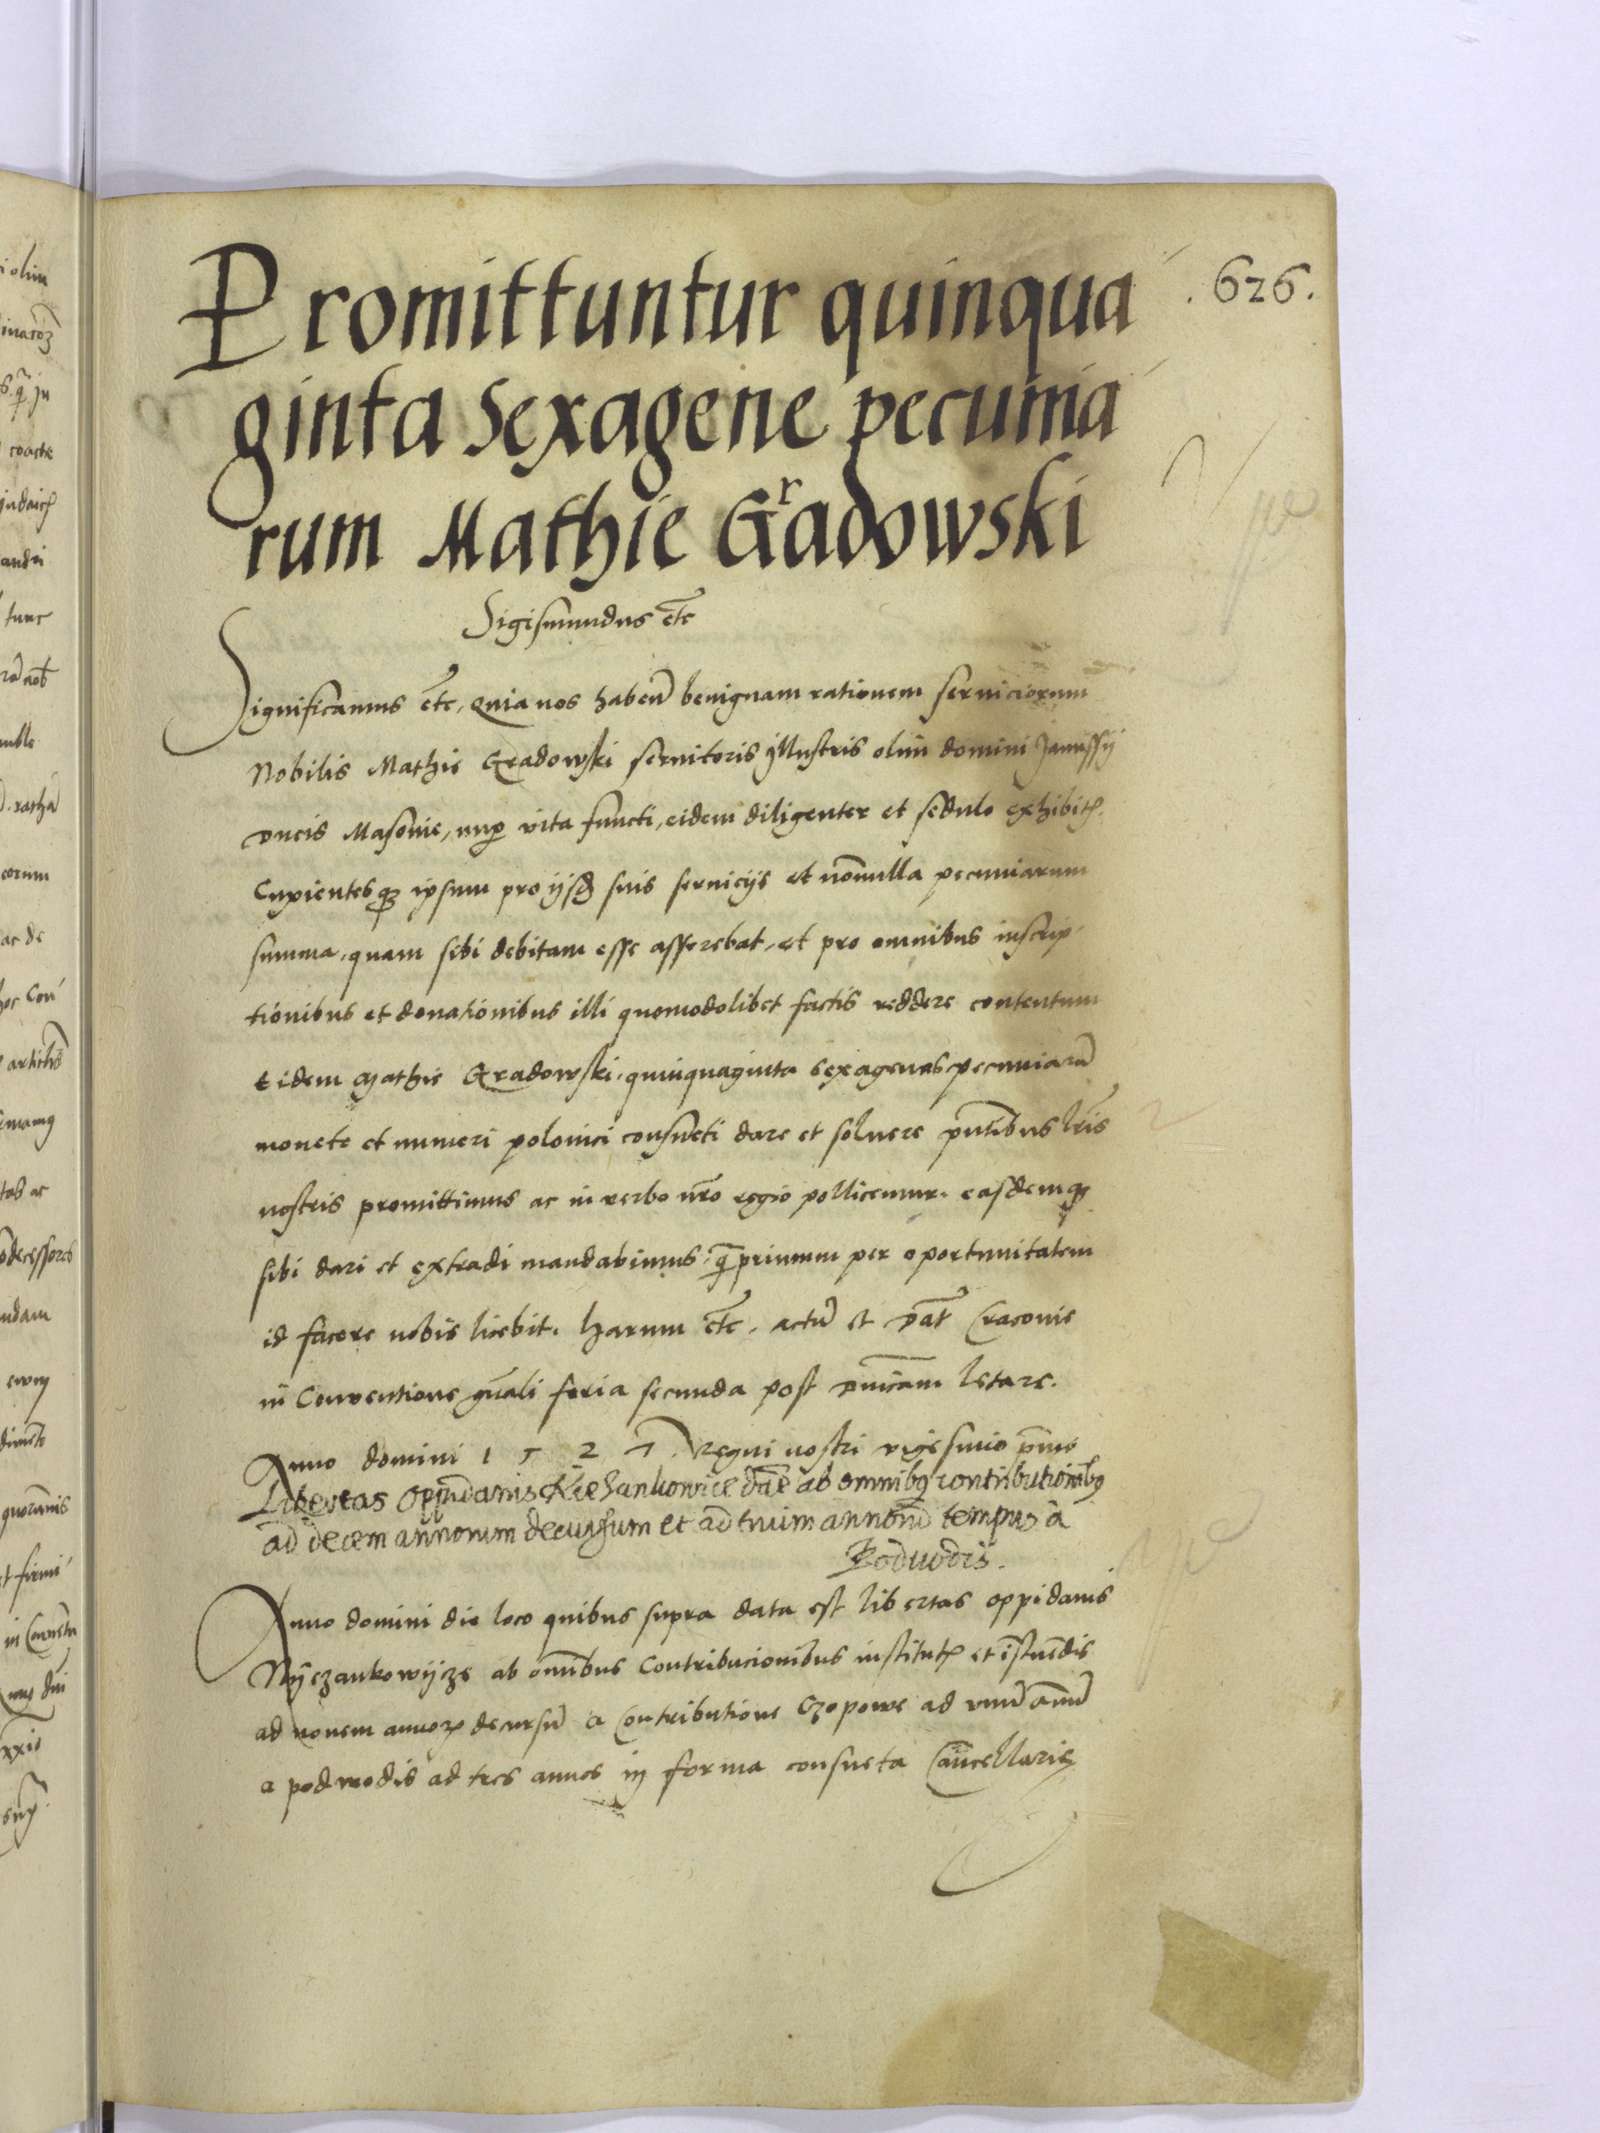 .626.
Promittuntur quinqua
ginta Sexagene pecunia
rum Mathie Gradowski
Sigismundus etc
Significamus etc, Quia nos haben̄ benignam rationem seruiciorum
Nobilis Mathie Gradowski seruitoris jllustris olim domini Janussij
Ducis Masouie, nup vita functi, eidem diligenter et sedulo exhibit
Cupientesq ipsum pro ijsd suis seruicijs et nōnnulla pecuniarum
summa, quam sibi debitam esse asserebat, et pro omnibus inscrip
tionibus et donationibus illi quomodolibet factis reddere contentum
Eidem Mathie Gradowski, quinquaginta sexagenas pecuniarū
monete et numeri polonici consueti dare et soluere pn̄tibus lr̄is
nostris promittimus ac in verbo nr̄o regio pollicemur, easdemq
sibi dari et extradi mandabimus, q̄primum per oportunitatem
id facere nobis licebit, harum etc, actū et Dat̄ Cracouie
in Conuentione gn̄ali feria secunda post Dn̄icam letare.
Anno domini 1527 Regni nostri vigesimo p̄mo
Libertas Oppidanis Nieżankowice dn̄e ab omnibq contributionibq
ad decem annorum decursum et ad trium annorū tempus a
Podwodis.
Anno domini die loco quibus supra data est libertas oppidanis
Nyezankowycze ab omībus Contribucionibus institut et īstuēdis
ad nouem annoꝝ decursū a Contributione Czopowe ad vnū annū
a podwodis ad tres annos in forma consueta Cancellarie